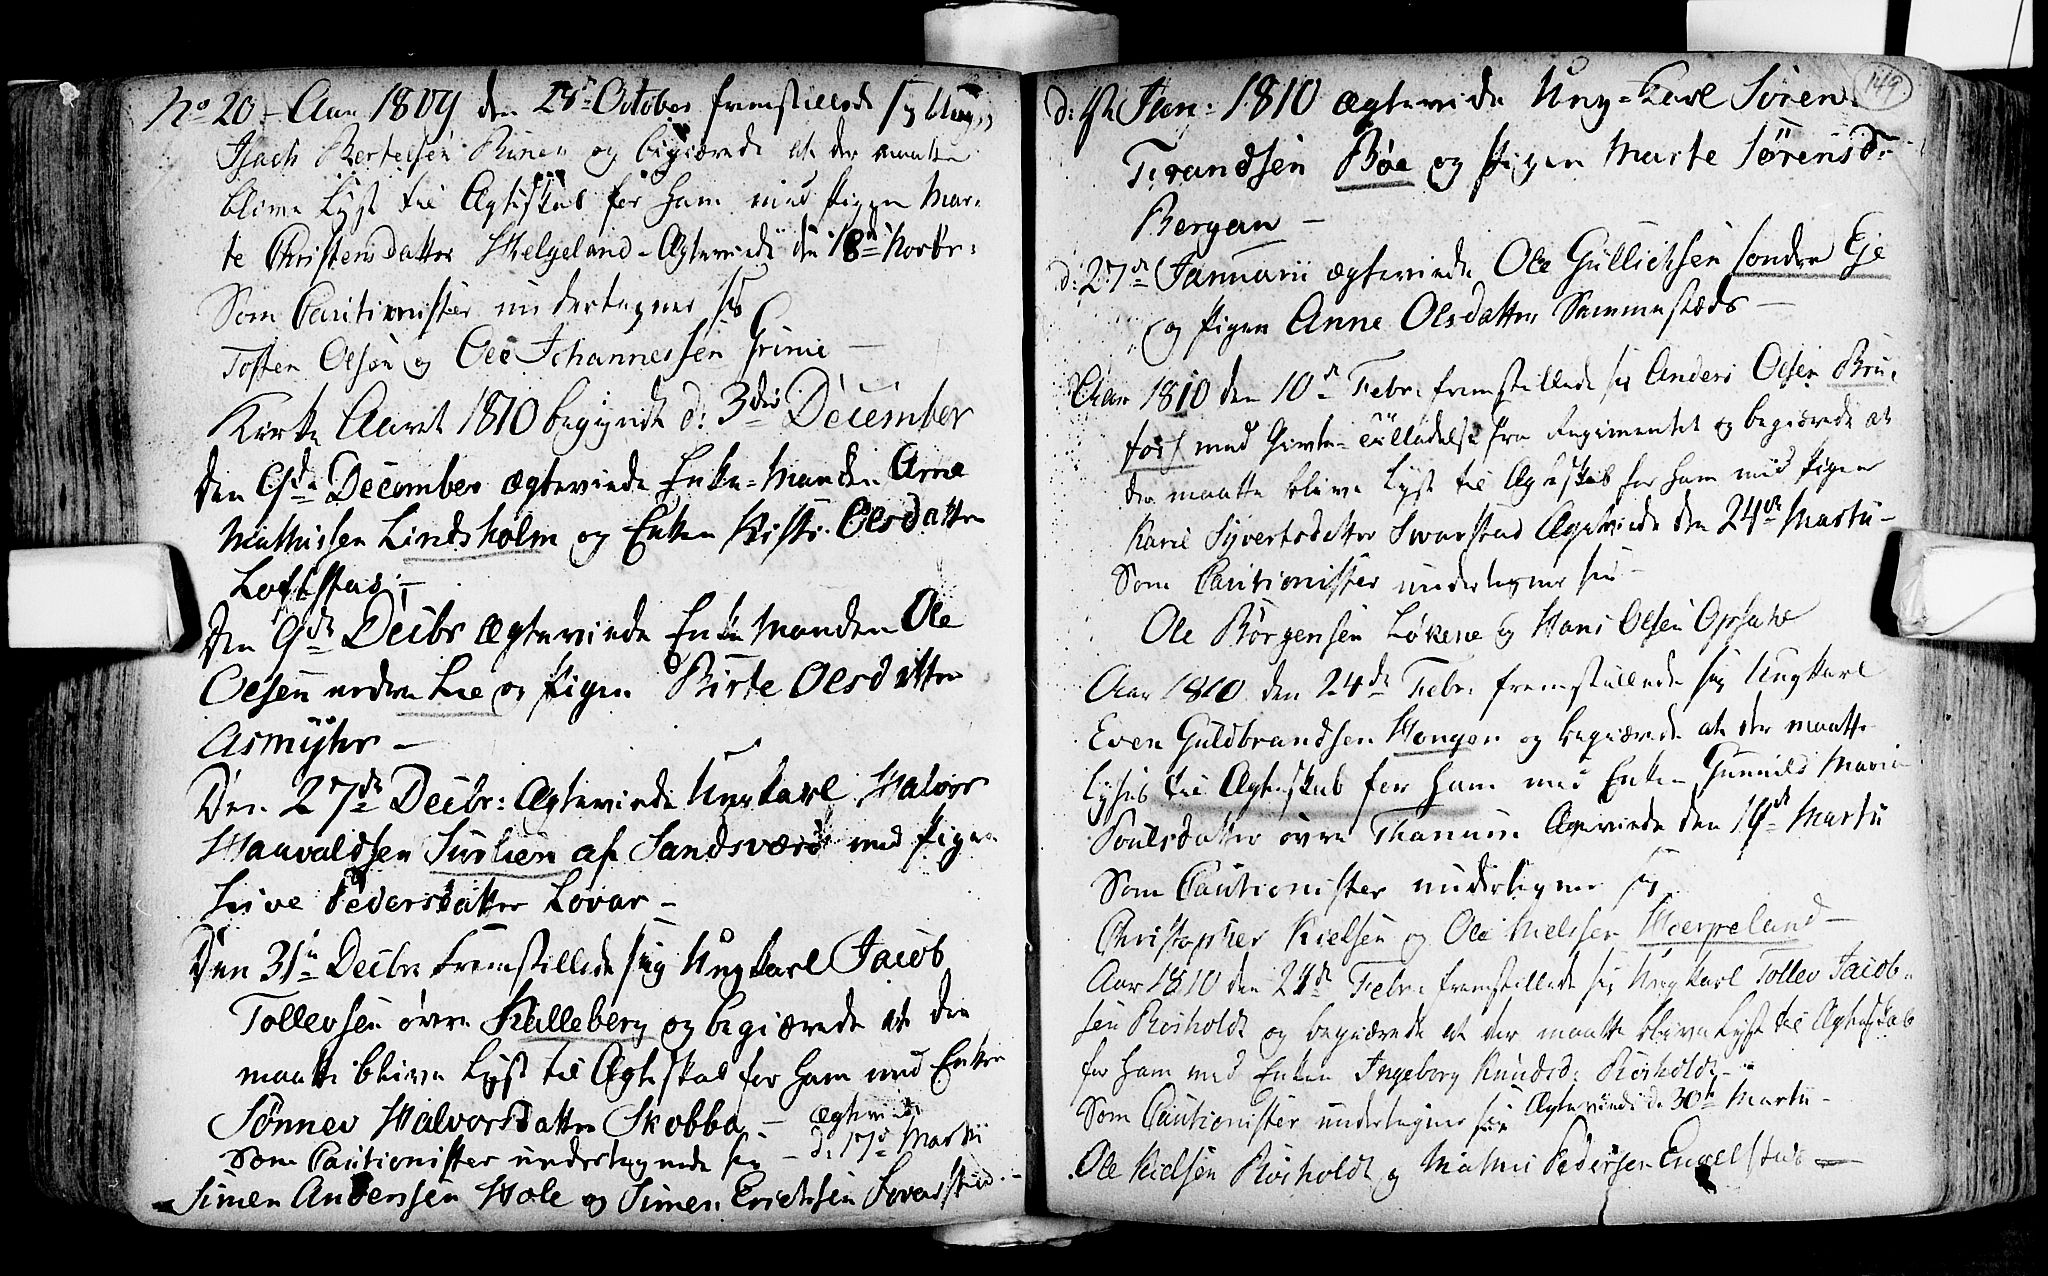 No 20 - Aar 1809 den 28de October fremstillede sig Ung
Isach Bertelsen Runen og begiærede at der maatte
blive Lyst til Ægteskab for ham med Pigen Mar-
te Christensdatter Helgeland - Ægteviede den 18de Novbr:
Som Cautionister undertegner sig
Tosten Olsen og Ole Johannessen Grime -
Kirke Aaret 1810 begyndt d: 3die December
Den 9de December ægteviede Enke-Manden Arne
Mathisen Lindsholm og Enken Kisti Olsdatter
Loftstad -
Den 9de Decbr ægteviede Enke Manden Ole
Olsen nedre Lie og Pigen Birte Olsdatter
Asmyhr -
Den 27de Decbr: Ægteviede Ungkarl Halvor
Haavaldsen Surlien af Sandsværd med Pigen
Live Pedersdatter Lovar -
Den 31te Decbr fremstillede sig Ungkarl Jacob
Tollevsen övre Kalleberg og begiærede at der
maatte blive Lyst til Ægteskab for ham med Enken
Sønnev Halvorsdatter Skobba - ægteviede
d: 17de Martii
Som Cautionister undertegnede sig -
Simen Anderssen Hole og Simen Erichsen Sevarstad -
149
d: Jan: 1810 ægteviede Ung-karl Søren
Trrandsen Bøe og Pigen Marte Sørensd:
Bergan -
d: 27de Januarii ægteviede Ole Gullichsen søndre Eje
og Pigen Anne Olsdatter Sammestæds -
Aar 1810 den 10de Febr: fremstillede sig Anders Olsen Bru-
fos med Givte-Tilladelse fra Regimentet og begiærede at
der maatte blive Lyst til Ægteskab for ham med Pigen
Karie Syvertsdatter Swarstad Ægteviede den 24de Martii -
Som Cautionister undertegner sig -
Ole Börgensen Løkene og Hans Olsen Opsahl
Aar 1810 den 24de Febr: fremstillede sig Ungkarl
Even Guldbrandsen Hougen og begiærede at der maatte
lyses til Ægteskab for ham med Enken Gunnild Marie
Poulsdatter övre Thanum Ægteviede den 19de Martii
Som Cautionister undertegner sig
Christopher Nielsen og Ole Nielssen Hierpeland -
Aar 1810 den 24de Febr: fremstillede sig Ungkarl Tollev Jacob-
sen Risholdt og begiærede at der maatte blive Lyst til Ægteskab
for ham med Enken Ingeborg Knudsd: Risholdt -
Som Cautionister undertegner sig Ægteviede d: 30te Martii -
Ole Nielsen Risholdt og Mathis Pedersen Engelstad -